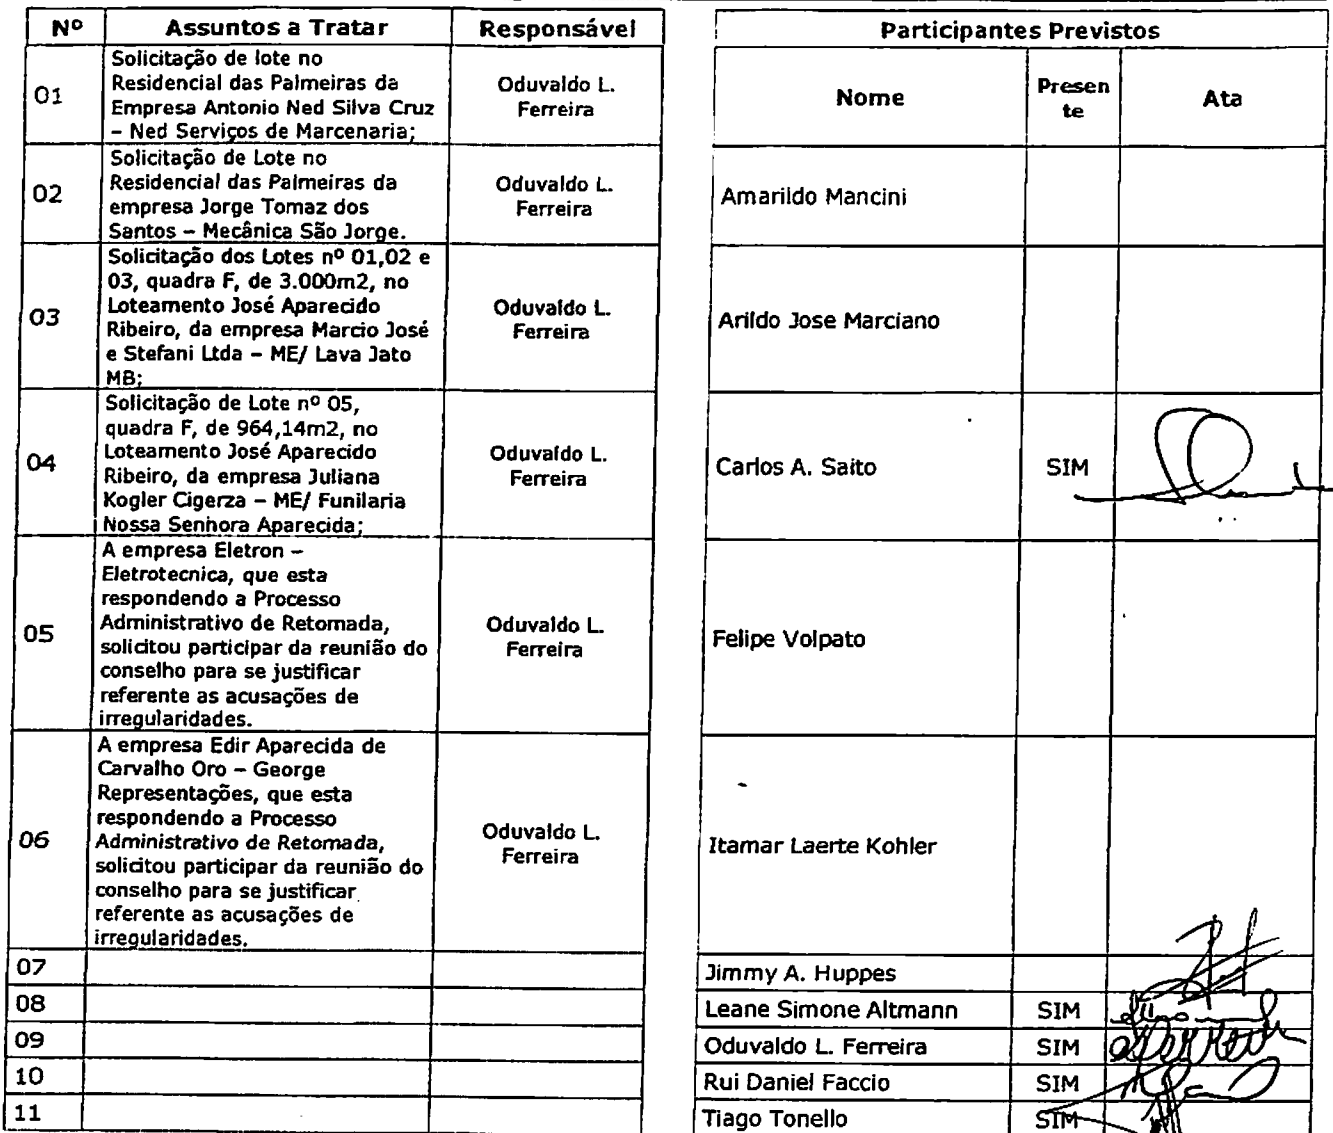 Nº Assuntos a Tratar Responsável
01
Solicitação de lote no
Residencial das Palmeiras da
Empresa Antonio Ned Silva Cruz
– Ned Serviços de Marcenaria;
Oduvaldo L.
Ferreira
02
Solicitação de Lote no
Residencial das Palmeiras da
empresa Jorge Tomaz dos
Santos – Mecânica São Jorge.
Oduvaldo L.
Ferreira
03
Solicitação dos Lotes nº 01,02 e
03, quadra F, de 3.000m2, no
Loteamento José Aparecido
Ribeiro, da empresa Marcio José
e Stefani Ltda – ME/ Lava Jato
MB;
Oduvaldo L.
Ferreira
04
Solicitação de Lote nº 05,
quadra F, de 964,14m2, no
Loteamento José Aparecido
Ribeiro, da empresa Juliana
Kogler Cigerza – ME/ Funilaria
Nossa Senhora Aparecida;
Oduvaldo L.
Ferreira
05
A empresa Eletron –
Eletrotecnica, que esta
respondendo a Processo
Administrativo de Retomada,
solicitou participar da reunião do
conselho para se justificar
referente as acusações de
irregularidades.
Oduvaldo L.
Ferreira
06
A empresa Edir Aparecida de
Carvalho Oro – George
Representações, que esta
respondendo a Processo
Administrativo de Retomada,
solicitou participar da reunião do
conselho para se justificar
referente as acusações de
irregularidades.
Oduvaldo L.
Ferreira
07
08
09
10
11
Participantes Previstos
Nome Presen
te Ata
Amarildo Mancini
Arildo Jose Marciano
Carlos A. Saito SIM
Felipe Volpato
Itamar Laerte Kohler
Jimmy A. Huppes
Leane Simone Altmann SIM
Oduvaldo L. Ferreira SIM
Rui Daniel Faccio SIM
Tiago Tonello SIM